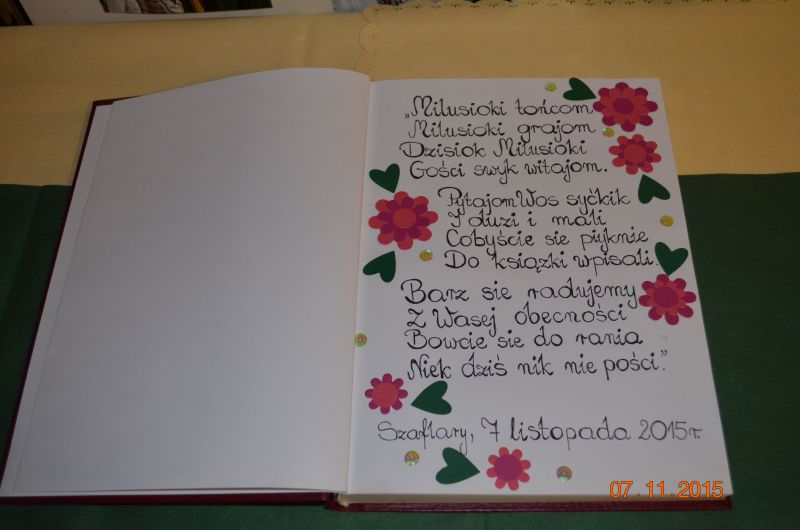 „Milusioki tońcom
Milusioki grajom
Dzisiok Milusioki
Gości swyk witajom.
Pytajom Wos syćkik
I duzi i mali
Cobyście sie piyknie
Do ksiązki wpisali.
Barz sie radujemy
Z Wasej obecności
Bowcie sie do rania
Niek dziś nik nie pości."
Szaflary, 7 listopada 2015r.
07.11.2015